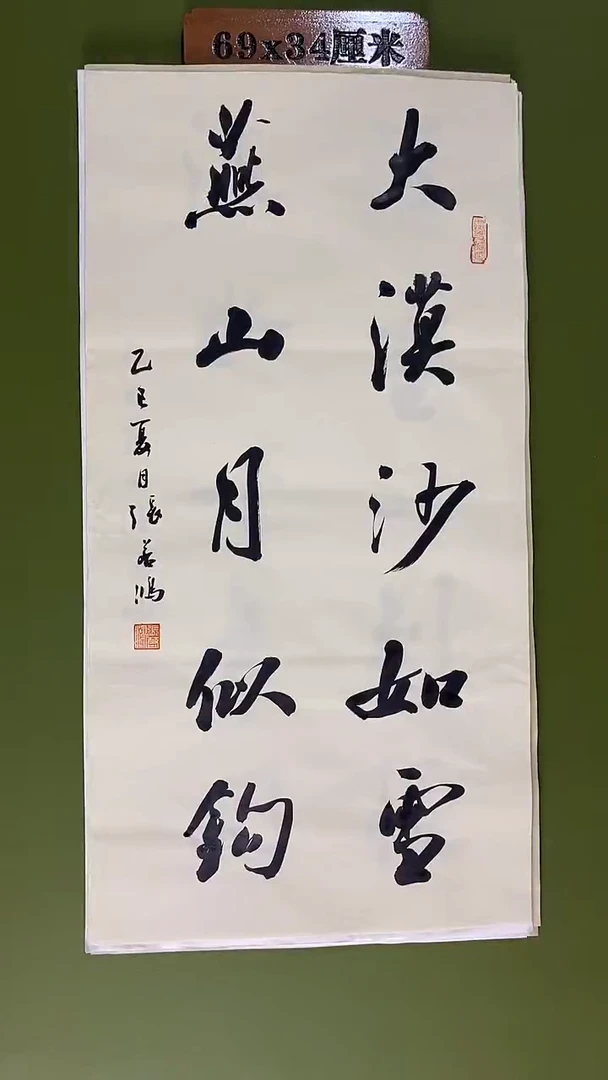 69x34厘米
大漠沙如雪
燕山月似鈎
乙巳夏月張若鴻